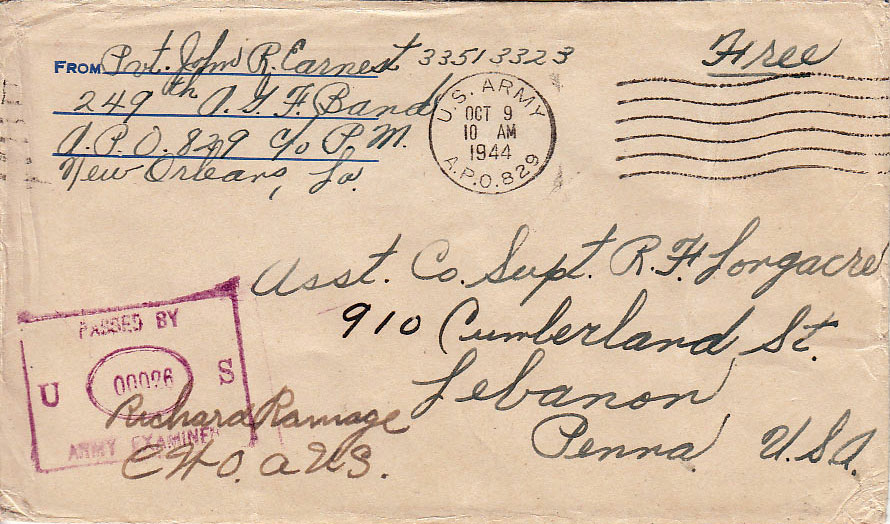 FROM Pvt. John R. Earnest 33513323
249th A.G.F. Band
A.P.O. 829 c/o P.M.
New Orleans, La.
U.S. ARMY
OCT 9
10 AM
1944
A.P.O. 829
Free
Asst. Co. Supt. R. F. Longacre
910 Cumberland St.
Lebanon
Penna U.S.A.
PASSED BY
U 00026 S
ARMY EXAMINER
Richard Ramage
CWO. AUS.